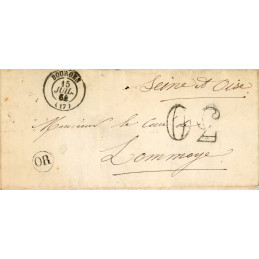 BOURGES
15
JUIL
64
(17)
Seine et Oise
30
Monsieur le Curé de
Lommoye
OR